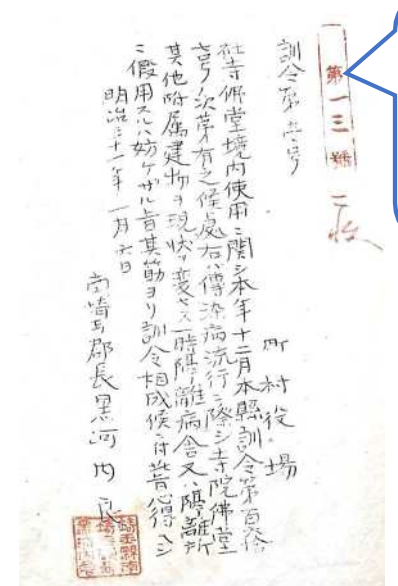 第一三號
二收
訓令第壱号
町村役場
社寺佛堂境内使用ニ関シ本年十二月本縣訓令第百
号ノ次第有之候處右ハ傳染病流行ニ際シ寺院佛堂
其他附属建物ヲ現状ヲ変セス一時隔離病舎又ハ隔離所
ニ假用スルハ妨ケザル旨其筋ヨリ訓令相成候ニ付此旨心得ヘシ
明治三十一年一月六日
南埼玉郡長黒河内良